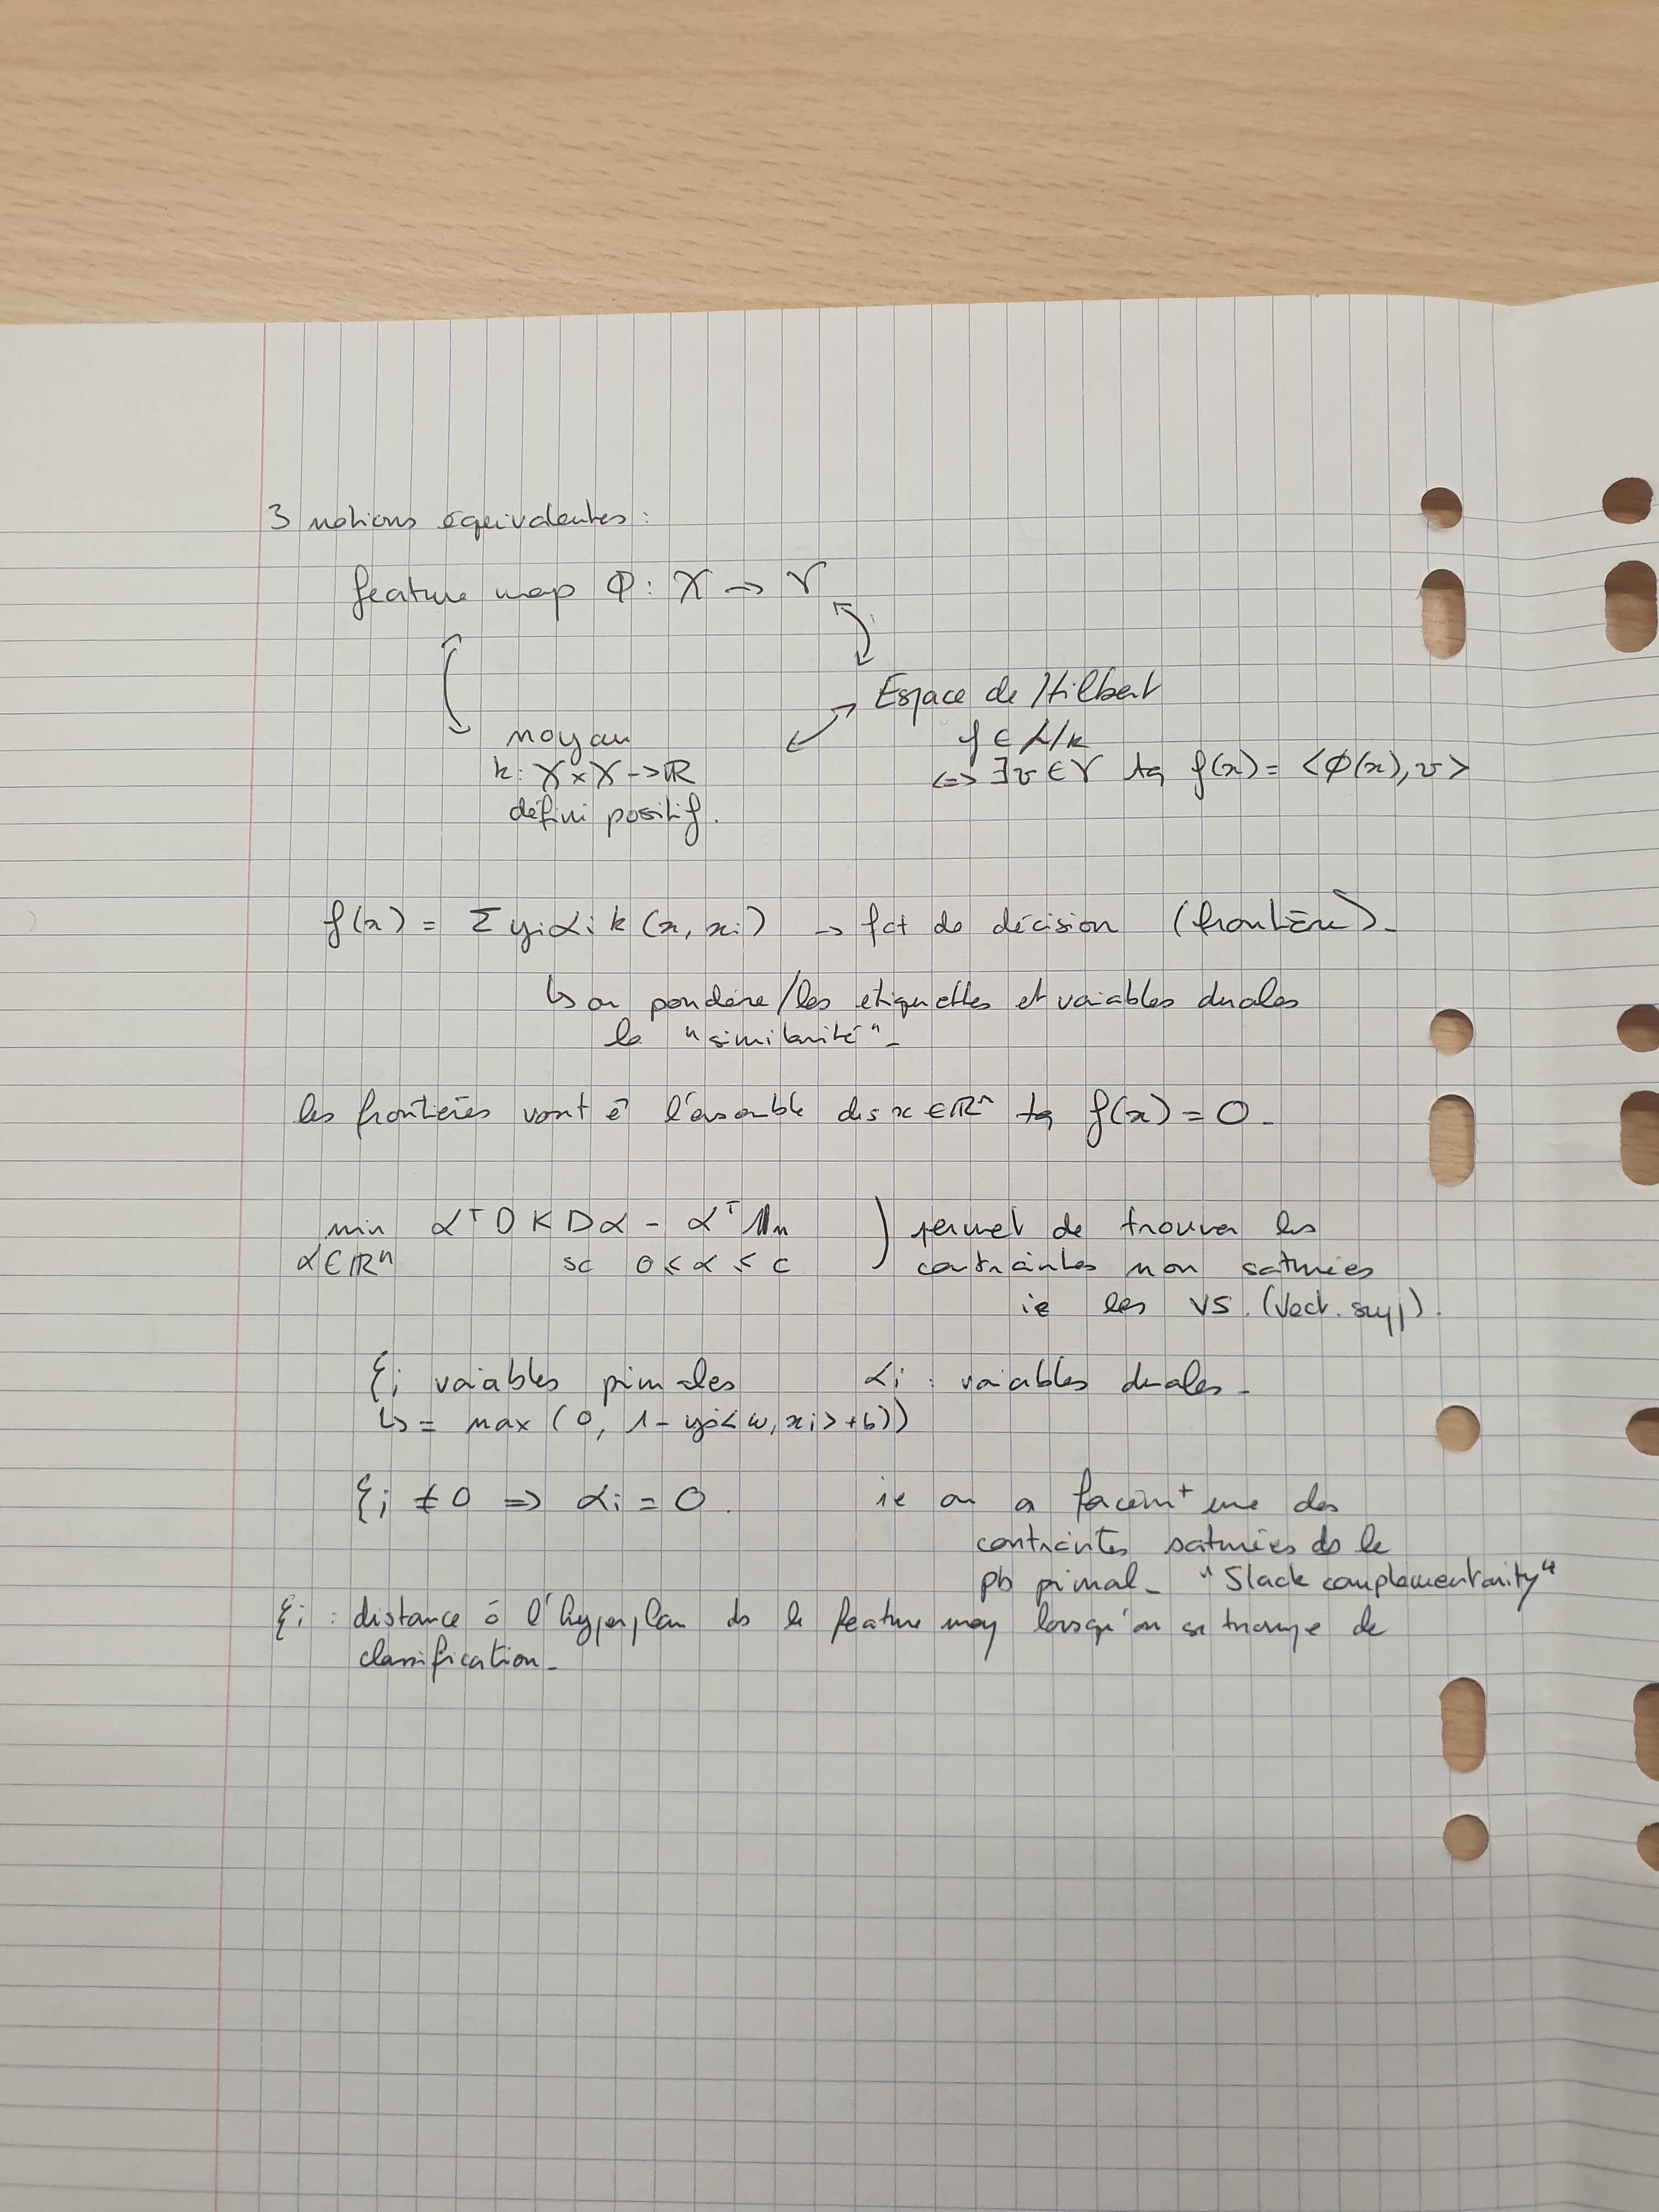 3 notions équivalentes :
feature map Φ : X → V
Espace de Hilbert
noyau
f ∈ H_k
k : X × X → ℝ
⟺ ∃ v ∈ V tq f(x) = <Φ(x), v>
défini positif.
f(x) = Σ yi αi k(x, xi) → fct de décision (frontière).
↳ on pondère / les étiquettes et variables duales
la "similarité".
les frontières vont ê l'ensemble des x ∈ ℝⁿ tq f(x) = 0.
min αᵀ D K D α - αᵀ 𝟙n ) permet de trouver les
α ∈ ℝⁿ sc 0 ≤ α ≤ c contraintes non saturées
ie les VS. (Vect. supp).
ξi variables primales αi : variables duales.
↳ = max (0, 1 - yi< w, xi> + b))
ξi ≠ 0 ⇒ αi = 0. ie on a forcémt une des
contraintes saturées ds le
pb primal. "Slack complementarity"
ξi : distance à l'hyperplan ds le feature map lorsqu'on se trompe de
classification.